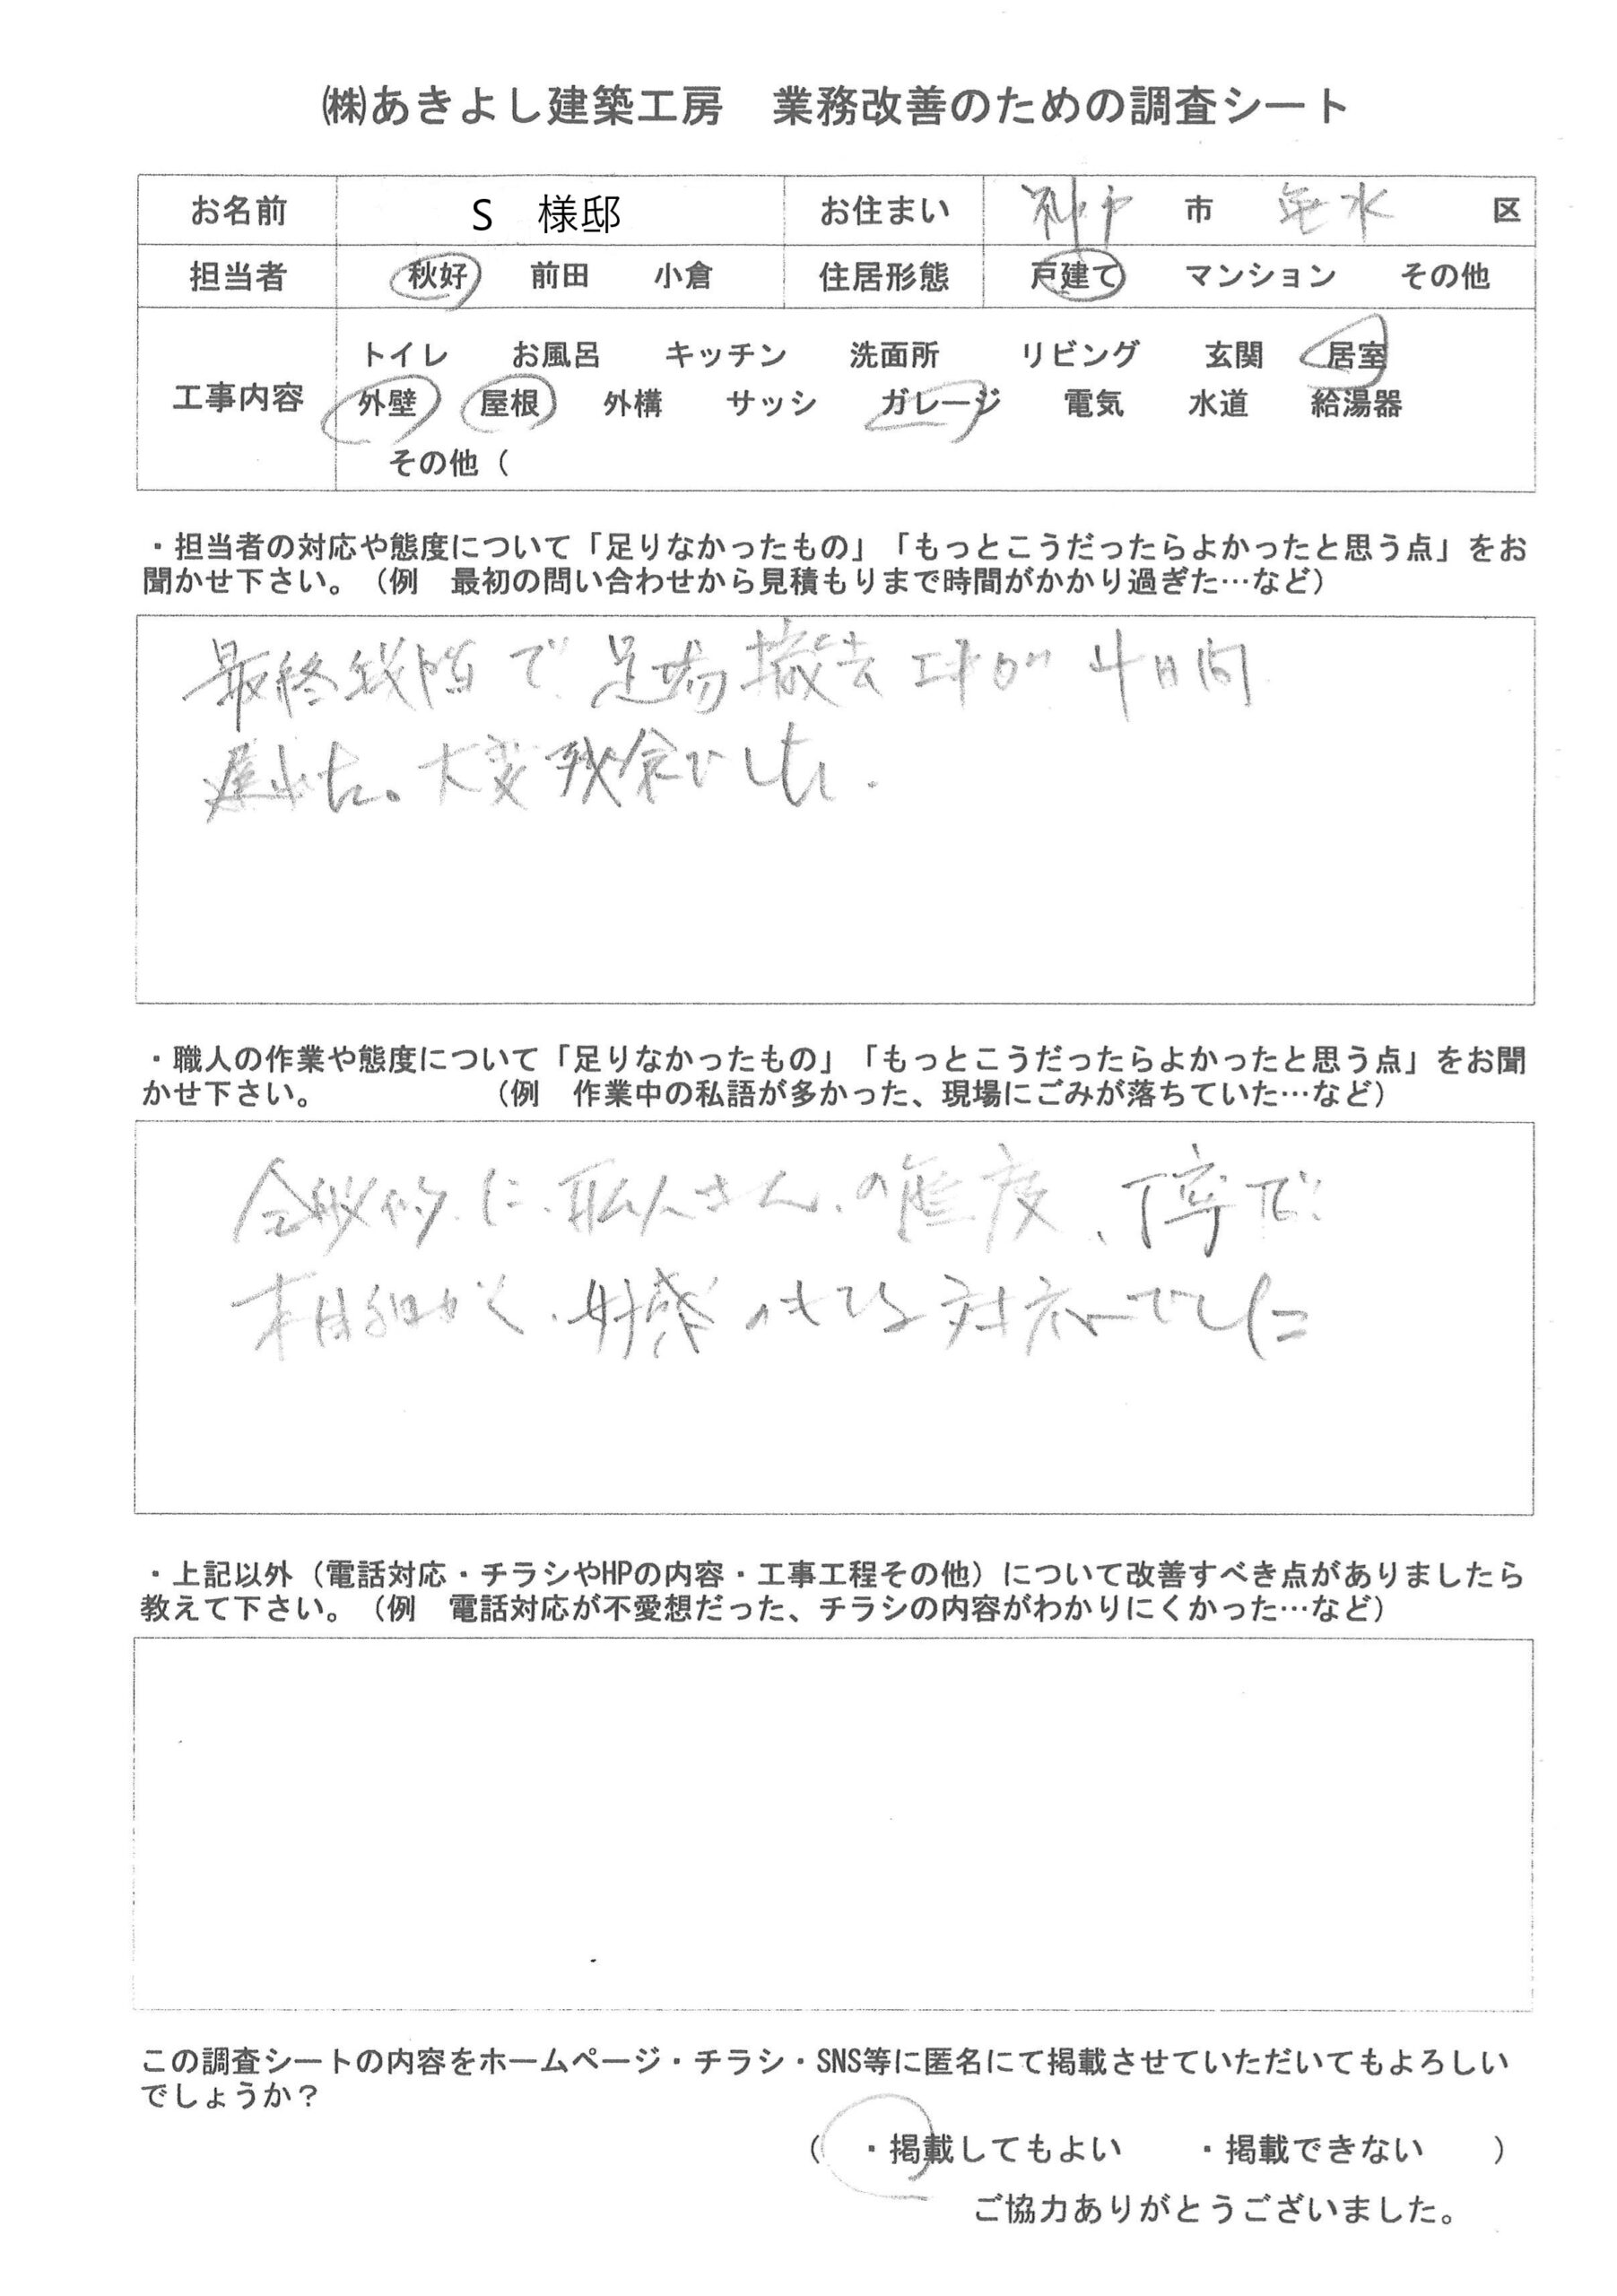 ㈱あきよし建築工房　業務改善のための調査シート
お名前　S　様邸　お住まい　神戸　市　垂水　区
担当者　秋好　前田　小倉　住居形態　戸建て　マンション　その他
トイレ　お風呂　キッチン　洗面所　リビング　玄関　居室
工事内容　外壁　屋根　外構　サッシ　ガレージ　電気　水道　給湯器
その他（
・担当者の対応や態度について「足りなかったもの」「もっとこうだったらよかったと思う点」をお
聞かせ下さい。（例　最初の問い合わせから見積もりまで時間がかかり過ぎた…など）
最終段階で足場撤去工事が4日間
遅れた。大変残念でした.
・職人の作業や態度について「足りなかったもの」「もっとこうだったらよかったと思う点」をお聞
かせ下さい。　（例　作業中の私語が多かった、現場にごみが落ちていた…など）
全般的に、職人さんの態度、丁寧で
木目細かく、好感のもてる対応でした
・上記以外（電話対応・チラシやHPの内容・工事工程その他）について改善すべき点がありましたら
教えて下さい。（例　電話対応が不愛想だった、チラシの内容がわかりにくかった…など）
この調査シートの内容をホームページ・チラシ・SNS等に匿名にて掲載させていただいてもよろしい
でしょうか？
（　・掲載してもよい　・掲載できない　）
ご協力ありがとうございました。